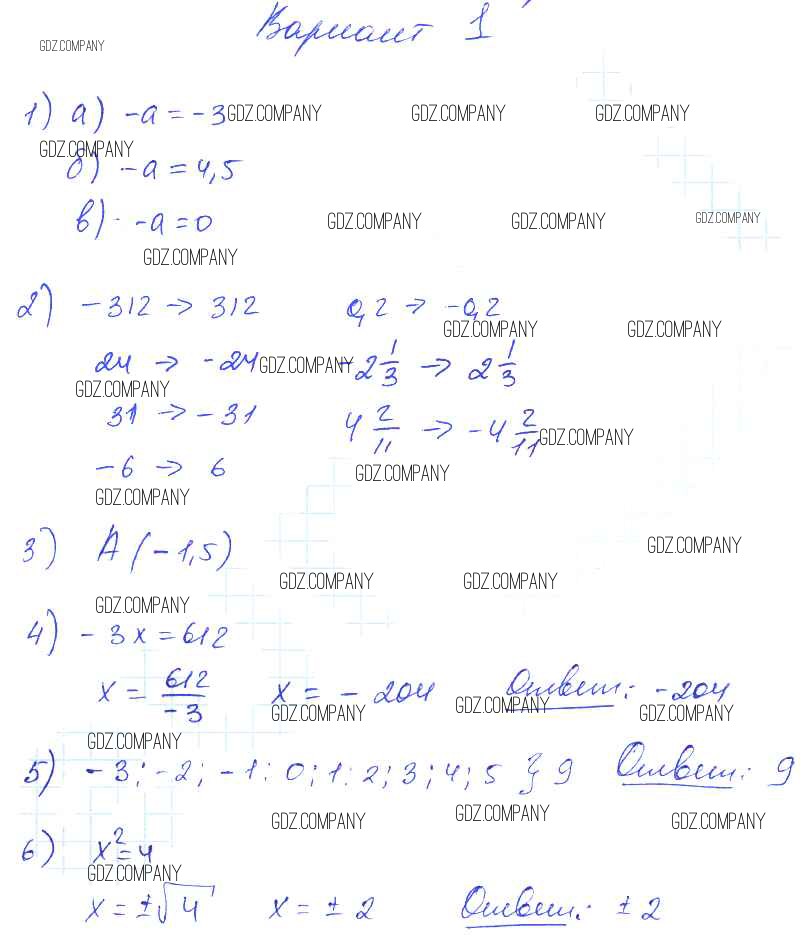 Вариант 1
GDZ.COMPANY
1) а) -а = -3 GDZ.COMPANY GDZ.COMPANY GDZ.COMPANY
GDZ.COMPANY
б) -а = 4,5
в) -а = 0 GDZ.COMPANY GDZ.COMPANY GDZ.COMPANY
GDZ.COMPANY
2) -312 → 312 0,2 → -0,2
GDZ.COMPANY GDZ.COMPANY
24 → -24 GDZ.COMPANY -2 1/3 → 2 1/3
GDZ.COMPANY
31 → -31 4 2/11 → -4 2/11 GDZ.COMPANY
-6 → 6 GDZ.COMPANY
GDZ.COMPANY
3) А (-1,5) GDZ.COMPANY
GDZ.COMPANY GDZ.COMPANY
GDZ.COMPANY
4) -3x = 612
x = 612/-3 x = -204 Ответ: -204
GDZ.COMPANY GDZ.COMPANY GDZ.COMPANY
GDZ.COMPANY
5) -3; -2; -1; 0; 1; 2; 3; 4; 5 } 9 Ответ: 9
GDZ.COMPANY GDZ.COMPANY GDZ.COMPANY
6) x² = 4
GDZ.COMPANY
x = ±√4 x = ± 2 Ответ: ± 2